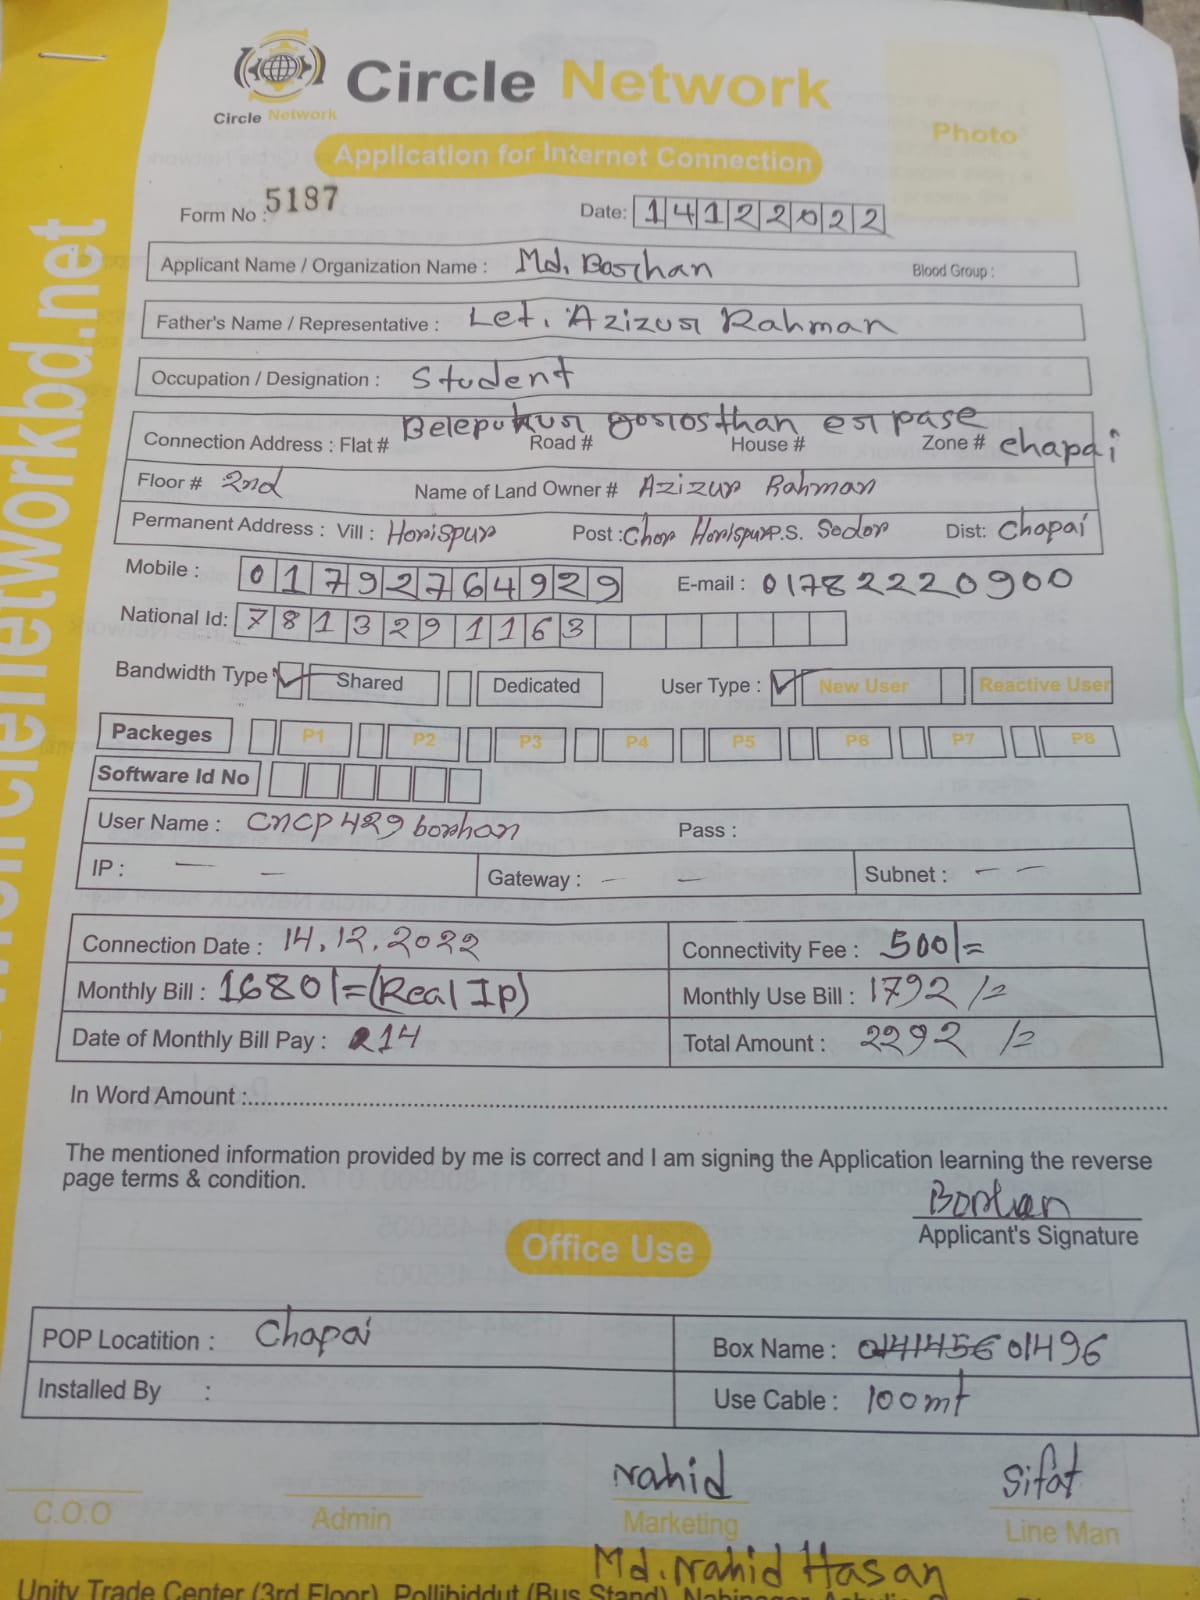 Circle Network
Circle Network
Photo
Application for Internet Connection
www.circlenetworkbd.net
Form No : 5187
Date: 14122022
Applicant Name / Organization Name : Md. Borhan Blood Group :
Father's Name / Representative : Let. Azizur Rahman
Occupation / Designation : Student
Belepukur gorosthan er pase
Connection Address : Flat # Road # House # Zone # chapai
Floor # 2nd Name of Land Owner # Azizur Rahman
Permanent Address : Vill : Horispur Post : Chor Horispur P.S. Sodor Dist: Chapai
Mobile : 01792764929 E-mail : 01782220900
National Id: 7813291163
Bandwidth Type : Shared Dedicated User Type : New User Reactive User
Packeges P1 P2 P3 P4 P5 P6 P7 P8
Software Id No
User Name : CNCP429borhan Pass :
IP : — — Gateway : — — Subnet : — —
Connection Date : 14.12.2022 Connectivity Fee : 500/=
Monthly Bill : 1680/= (Real Ip) Monthly Use Bill : 1792/=
Date of Monthly Bill Pay : 14 Total Amount : 2292/=
In Word Amount :
The mentioned information provided by me is correct and I am signing the Application learning the reverse
page terms & condition.
Borhan
Applicant's Signature
Office Use
POP Locatition : Chapai Box Name : 01496
Installed By : Use Cable : 100mt
Nahid Sifat
C.O.O Admin Marketing Line Man
Md. Nahid Hasan
Unity Trade Center (3rd Floor), Pollibiddut (Bus Stand)